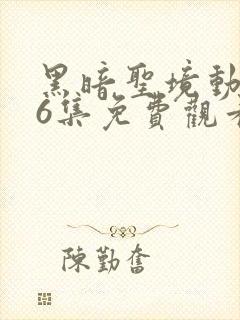 黑暗聖境動
6集免費觀看
陳勤奮